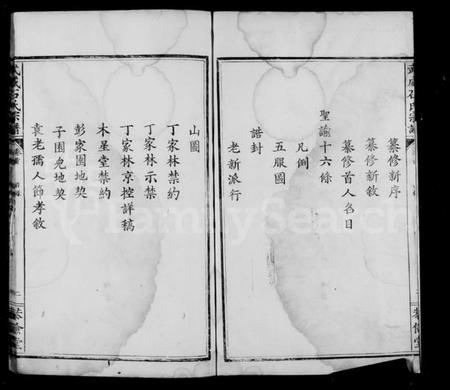 武威石氏宗譜
纂修新序
纂修新敘
纂修首人名目
聖諭十六條
凡例
五服圖
誥封
老新派行
山圖
丁家林禁約
丁家林示禁
丁家林京控詳稿
木星堂禁約
彭家園地契
子園兔地契
袁老孺人節孝敘
武威石氏宗譜
FamilySearch